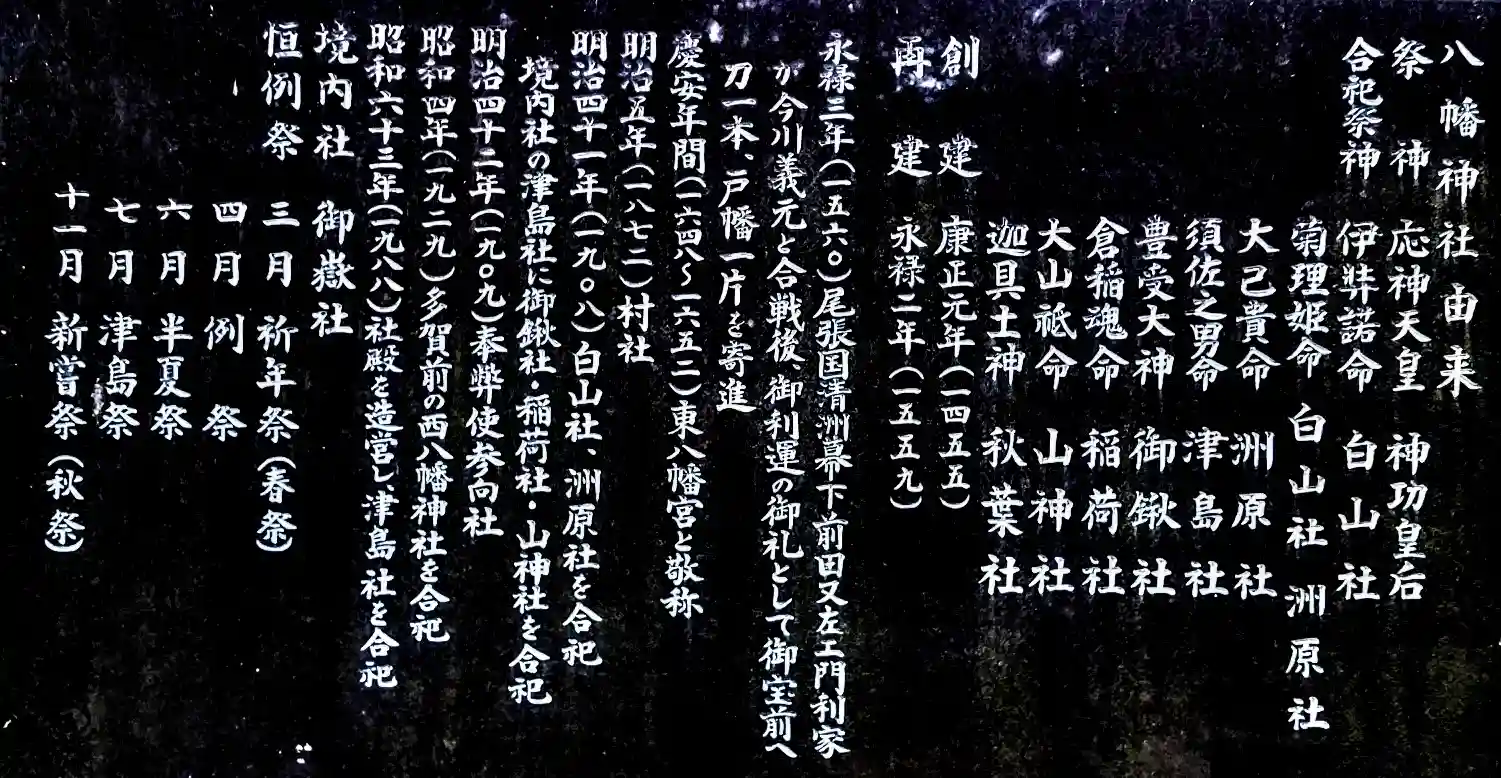 八幡神社由来
祭神 応神天皇 神功皇后
合祀祭神 伊弉諾命 白山社
菊理姫命 白山社 洲原社
大己貴命 洲原社
須佐之男命 津島社
豊受大神 御鍬社
倉稲魂命 稲荷社
大山祗命 山神社
迦具土神 秋葉社
創建 康正元年(一四五五)
再建 永禄二年(一五五九)
永禄三年(一五六〇)尾張国清洲幕下前田又左エ門利家
が今川義元と合戦後、御利運の御礼として御宝前へ
刀一本、戸幡一片を寄進
慶安年間(一六四八〜一六五二)東八幡宮と敬称
明治五年(一八七二)村社
明治四十一年(一九〇八)白山社、洲原社を合祀
境内社の津島社に御鍬社・稲荷社・山神社を合祀
明治四十二年(一九〇九)奉弊使参向社
昭和四年(一九二九)多賀前の西八幡神社を合祀
昭和六十三年(一九八八)社殿を造営し、津島社を合祀
境内社 御嶽社
恒例祭 三月 祈年祭(春祭)
四月 例祭
六月 半夏祭
七月 津島祭
十一月 新嘗祭(秋祭)